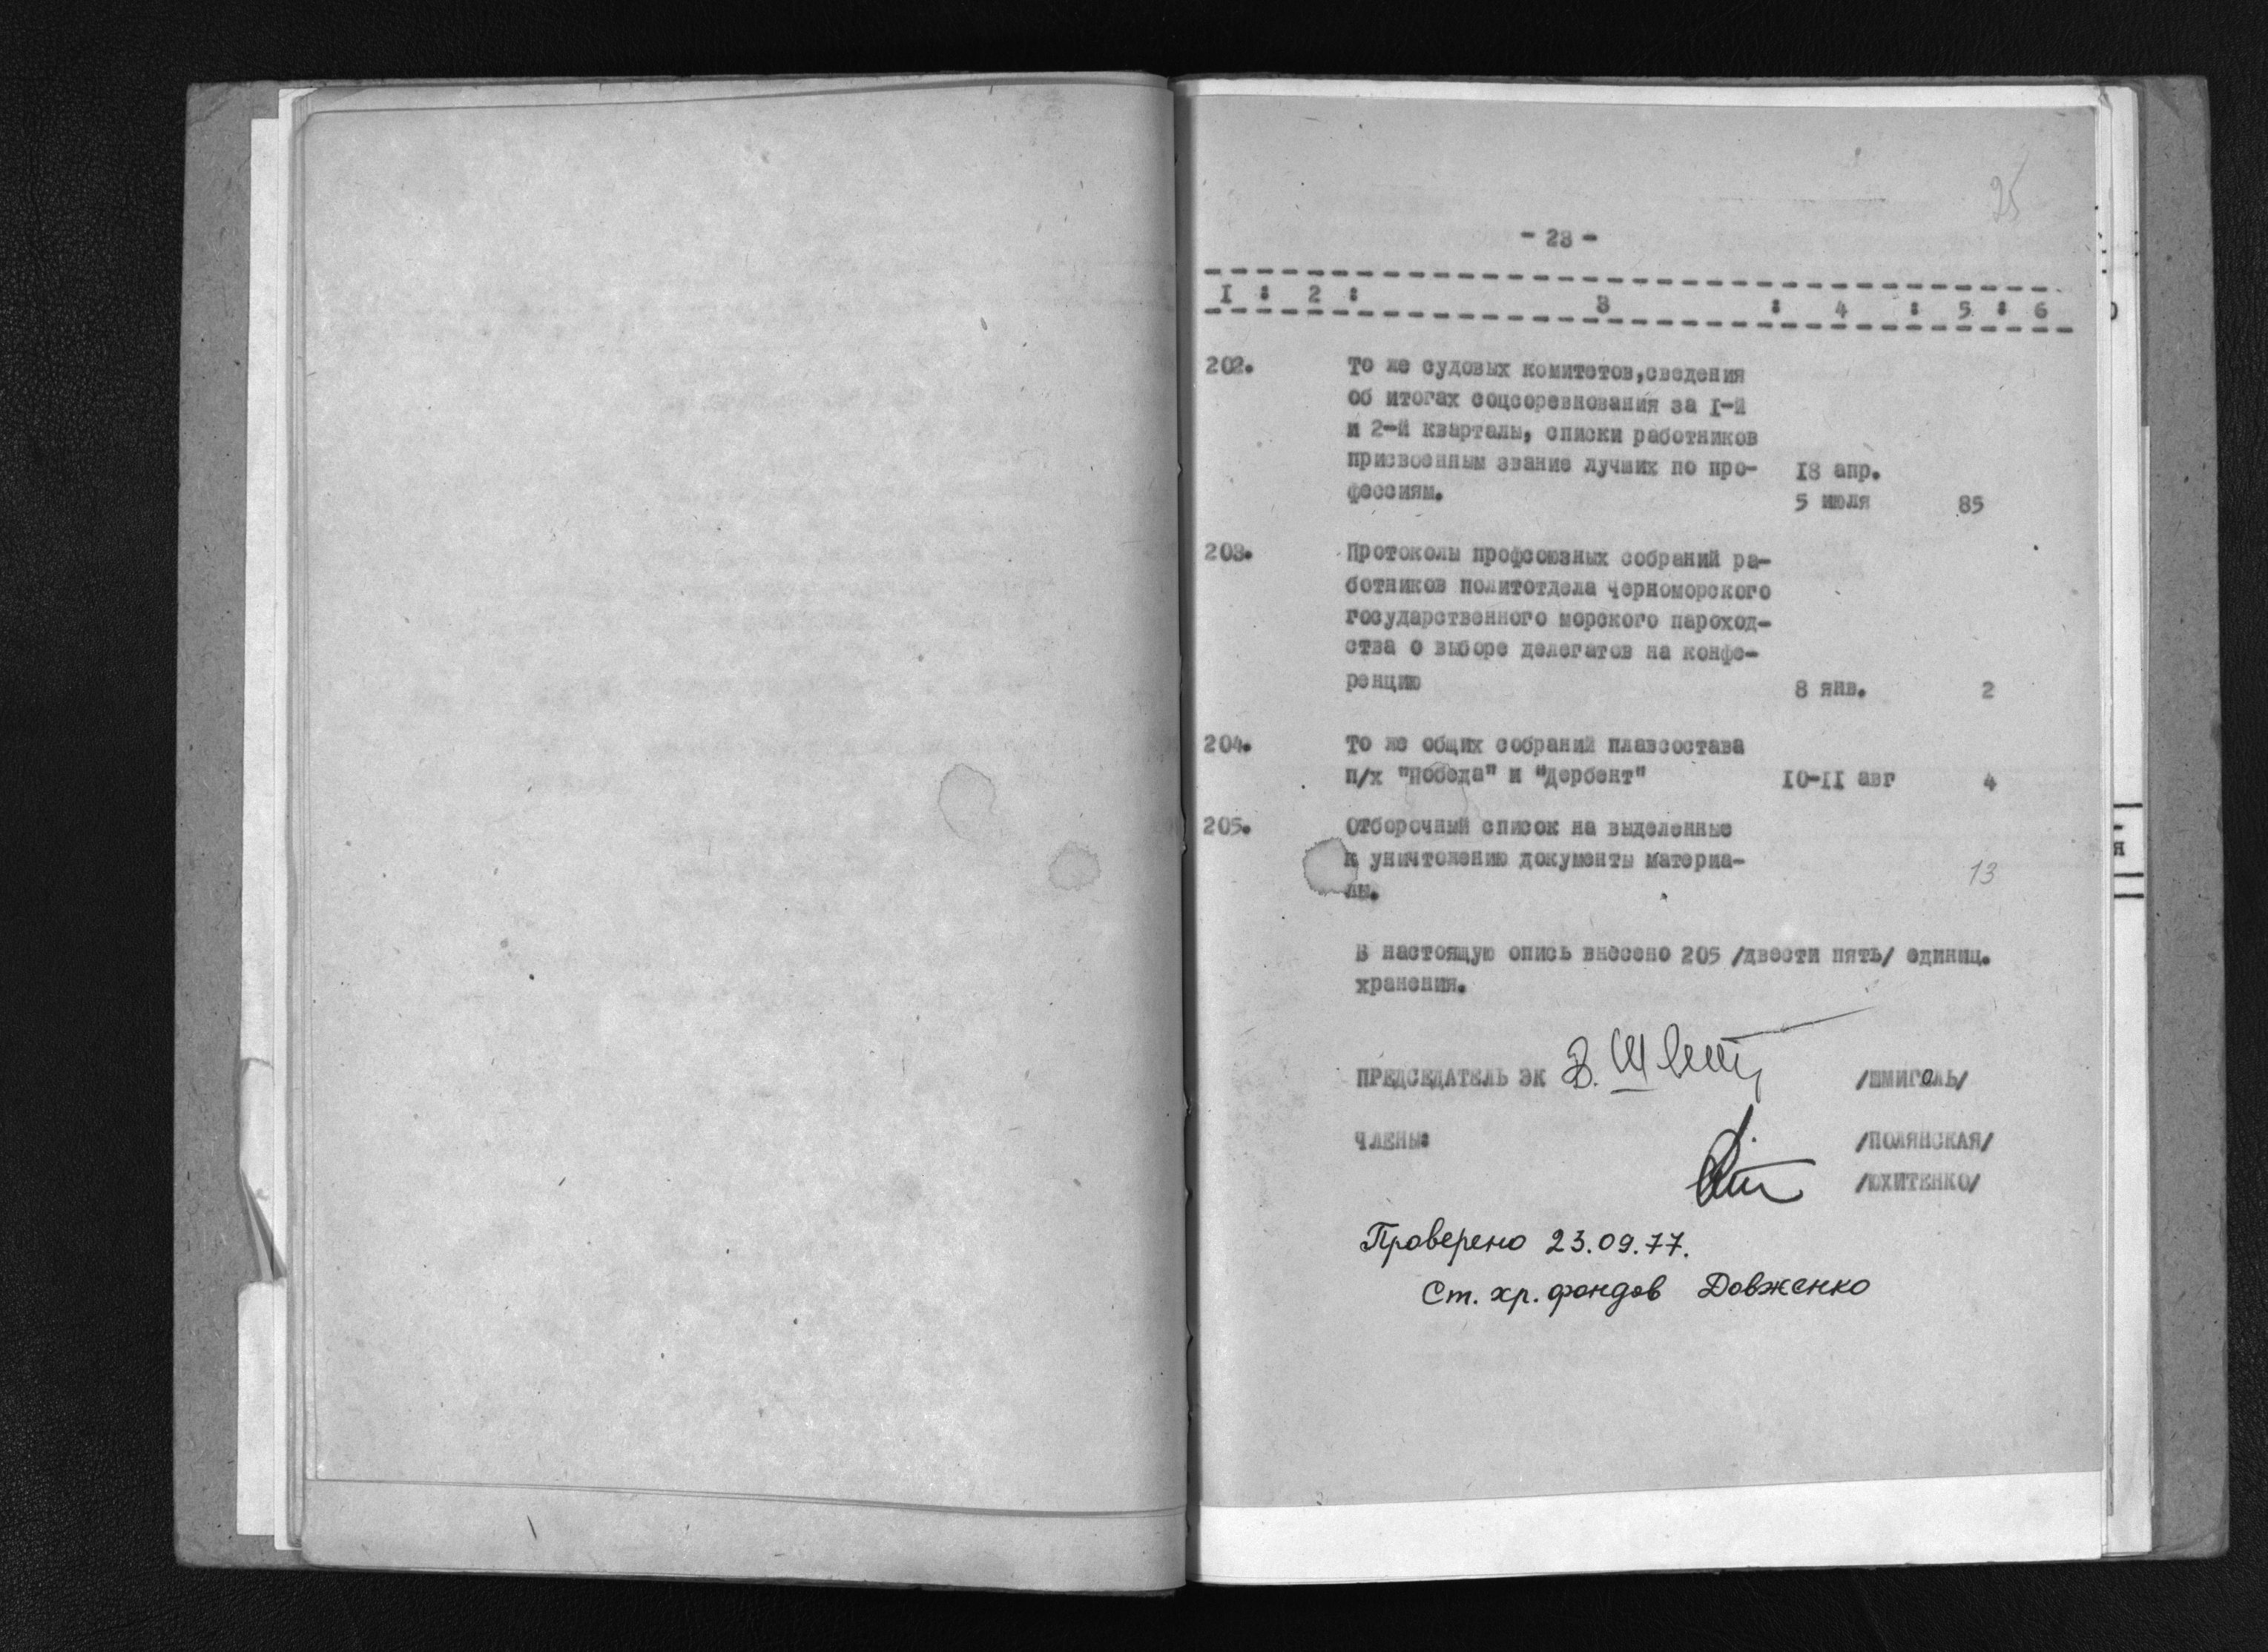 25
- 23 -
I : 2 : 3 : 4 : 5 : 6
202. То же судовых комитетов,сведения
об итогах соцсоревнования за I-й
и 2-й кварталы, списки работников
присвоенным звание лучших по про- 18 апр.
фессиям. 5 июля 85
203. Протоколы профсоюзных собраний ра-
ботников политотдела Черноморского
государственного морского пароход-
ства о выборе делегатов на конфе-
ренцию 8 янв. 2
204. То же общих собраний плавсостава
п/х "Победа" и "Дербент" 10-11 авг 4
205. Отборочный список на выделенные
к уничтожению документы материа- 13
лы.
В настоящую опись внесено 205 /двести пять/ единиц.
хранения.
ПРЕДСЕДАТЕЛЬ ЭК /ШМИГОЛЬ/
ЧЛЕНЫ: /ПОЛЯНСКАЯ/
/ЮХИТЕНКО/
Проверено 23.09.77.
Ст. хр. фондов Довженко
я